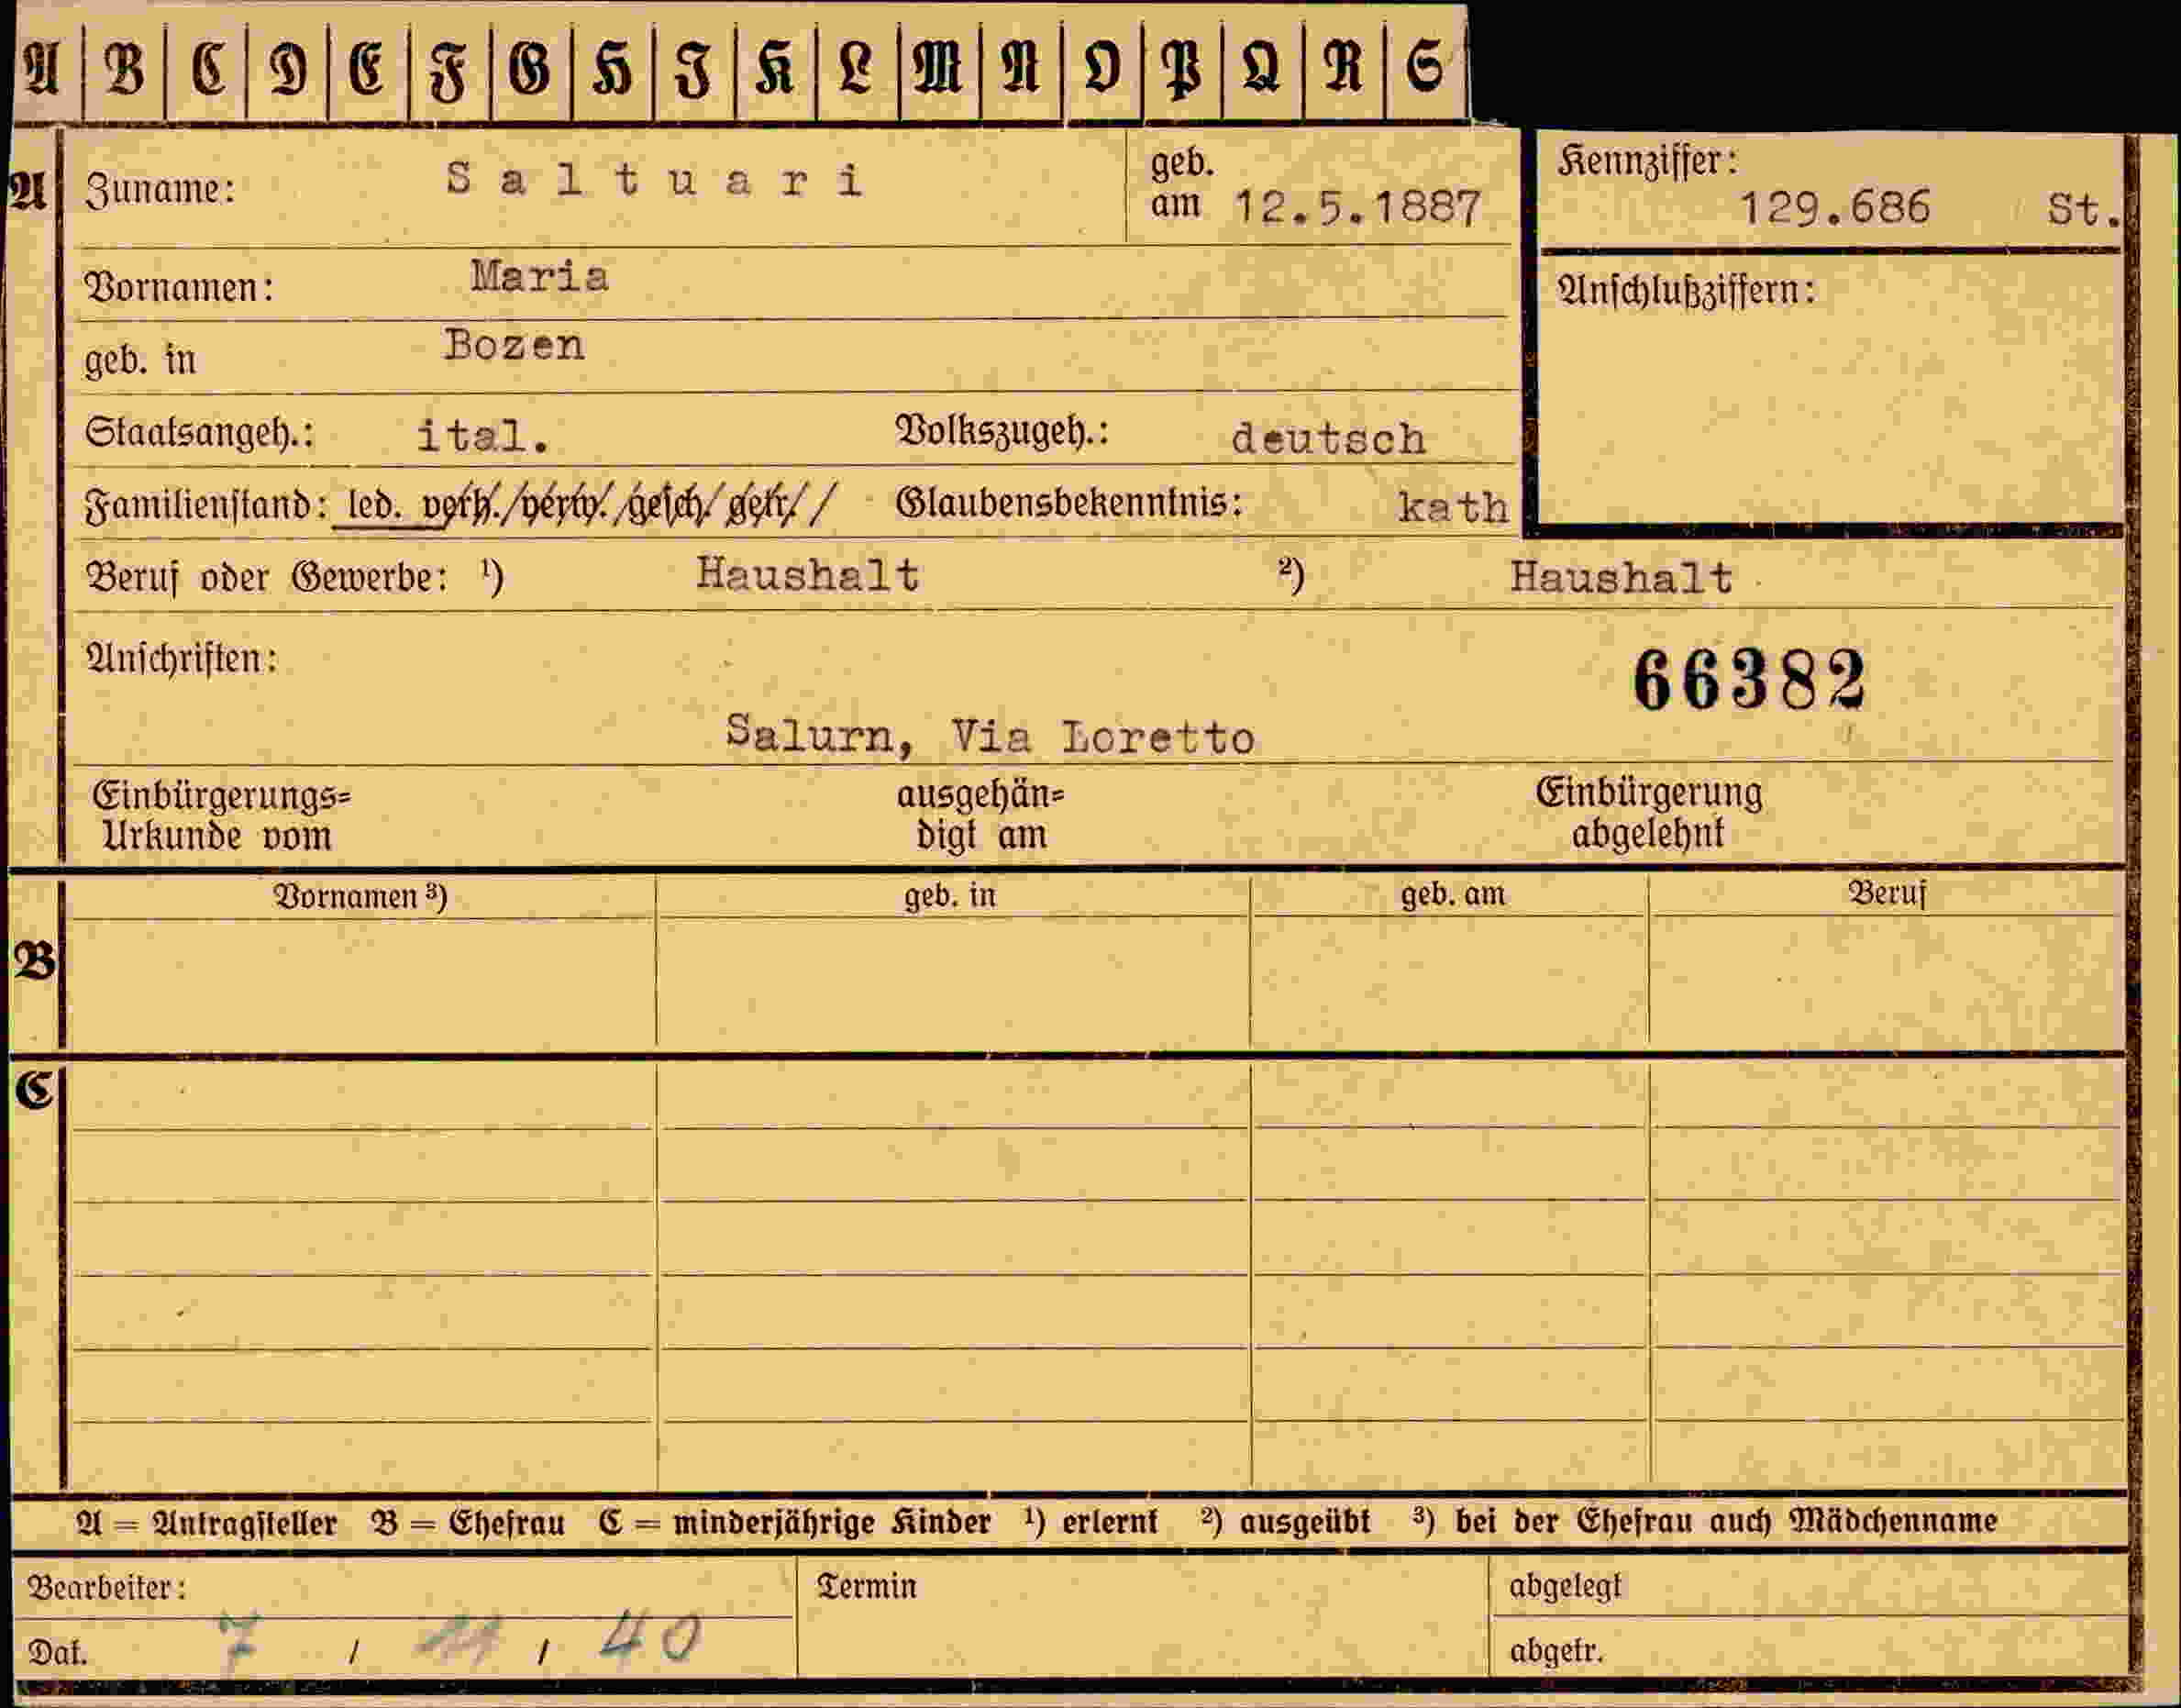 A B C D E F G H I K L M N O P Q R S
A Zuname: Saltuari geb. am 12.5.1887 Kennziffer: 129.686 St.
Vornamen: Maria Anschlußziffern:
geb. in Bozen
Staatsangeh.: ital. Volkszugeh.: deutsch
Familienstand: led. verh./verw./gesch/getr// Glaubensbekenntnis: kath
Beruf oder Gewerbe: ¹) Haushalt ²) Haushalt
Anschriften: 66382
Salurn, Via Loretto
Einbürgerungs= ausgehän= Einbürgerung
Urkunde vom digt am abgelehnt
Vornamen ³) geb. in geb. am Beruf
B
C
A = Antragsteller B = Ehefrau C = minderjährige Kinder ¹) erlernt ²) ausgeübt ³) bei der Ehefrau auch Mädchenname
Bearbeiter: Termin abgelegt
Dat. 7 / 11 / 40 abgetr.